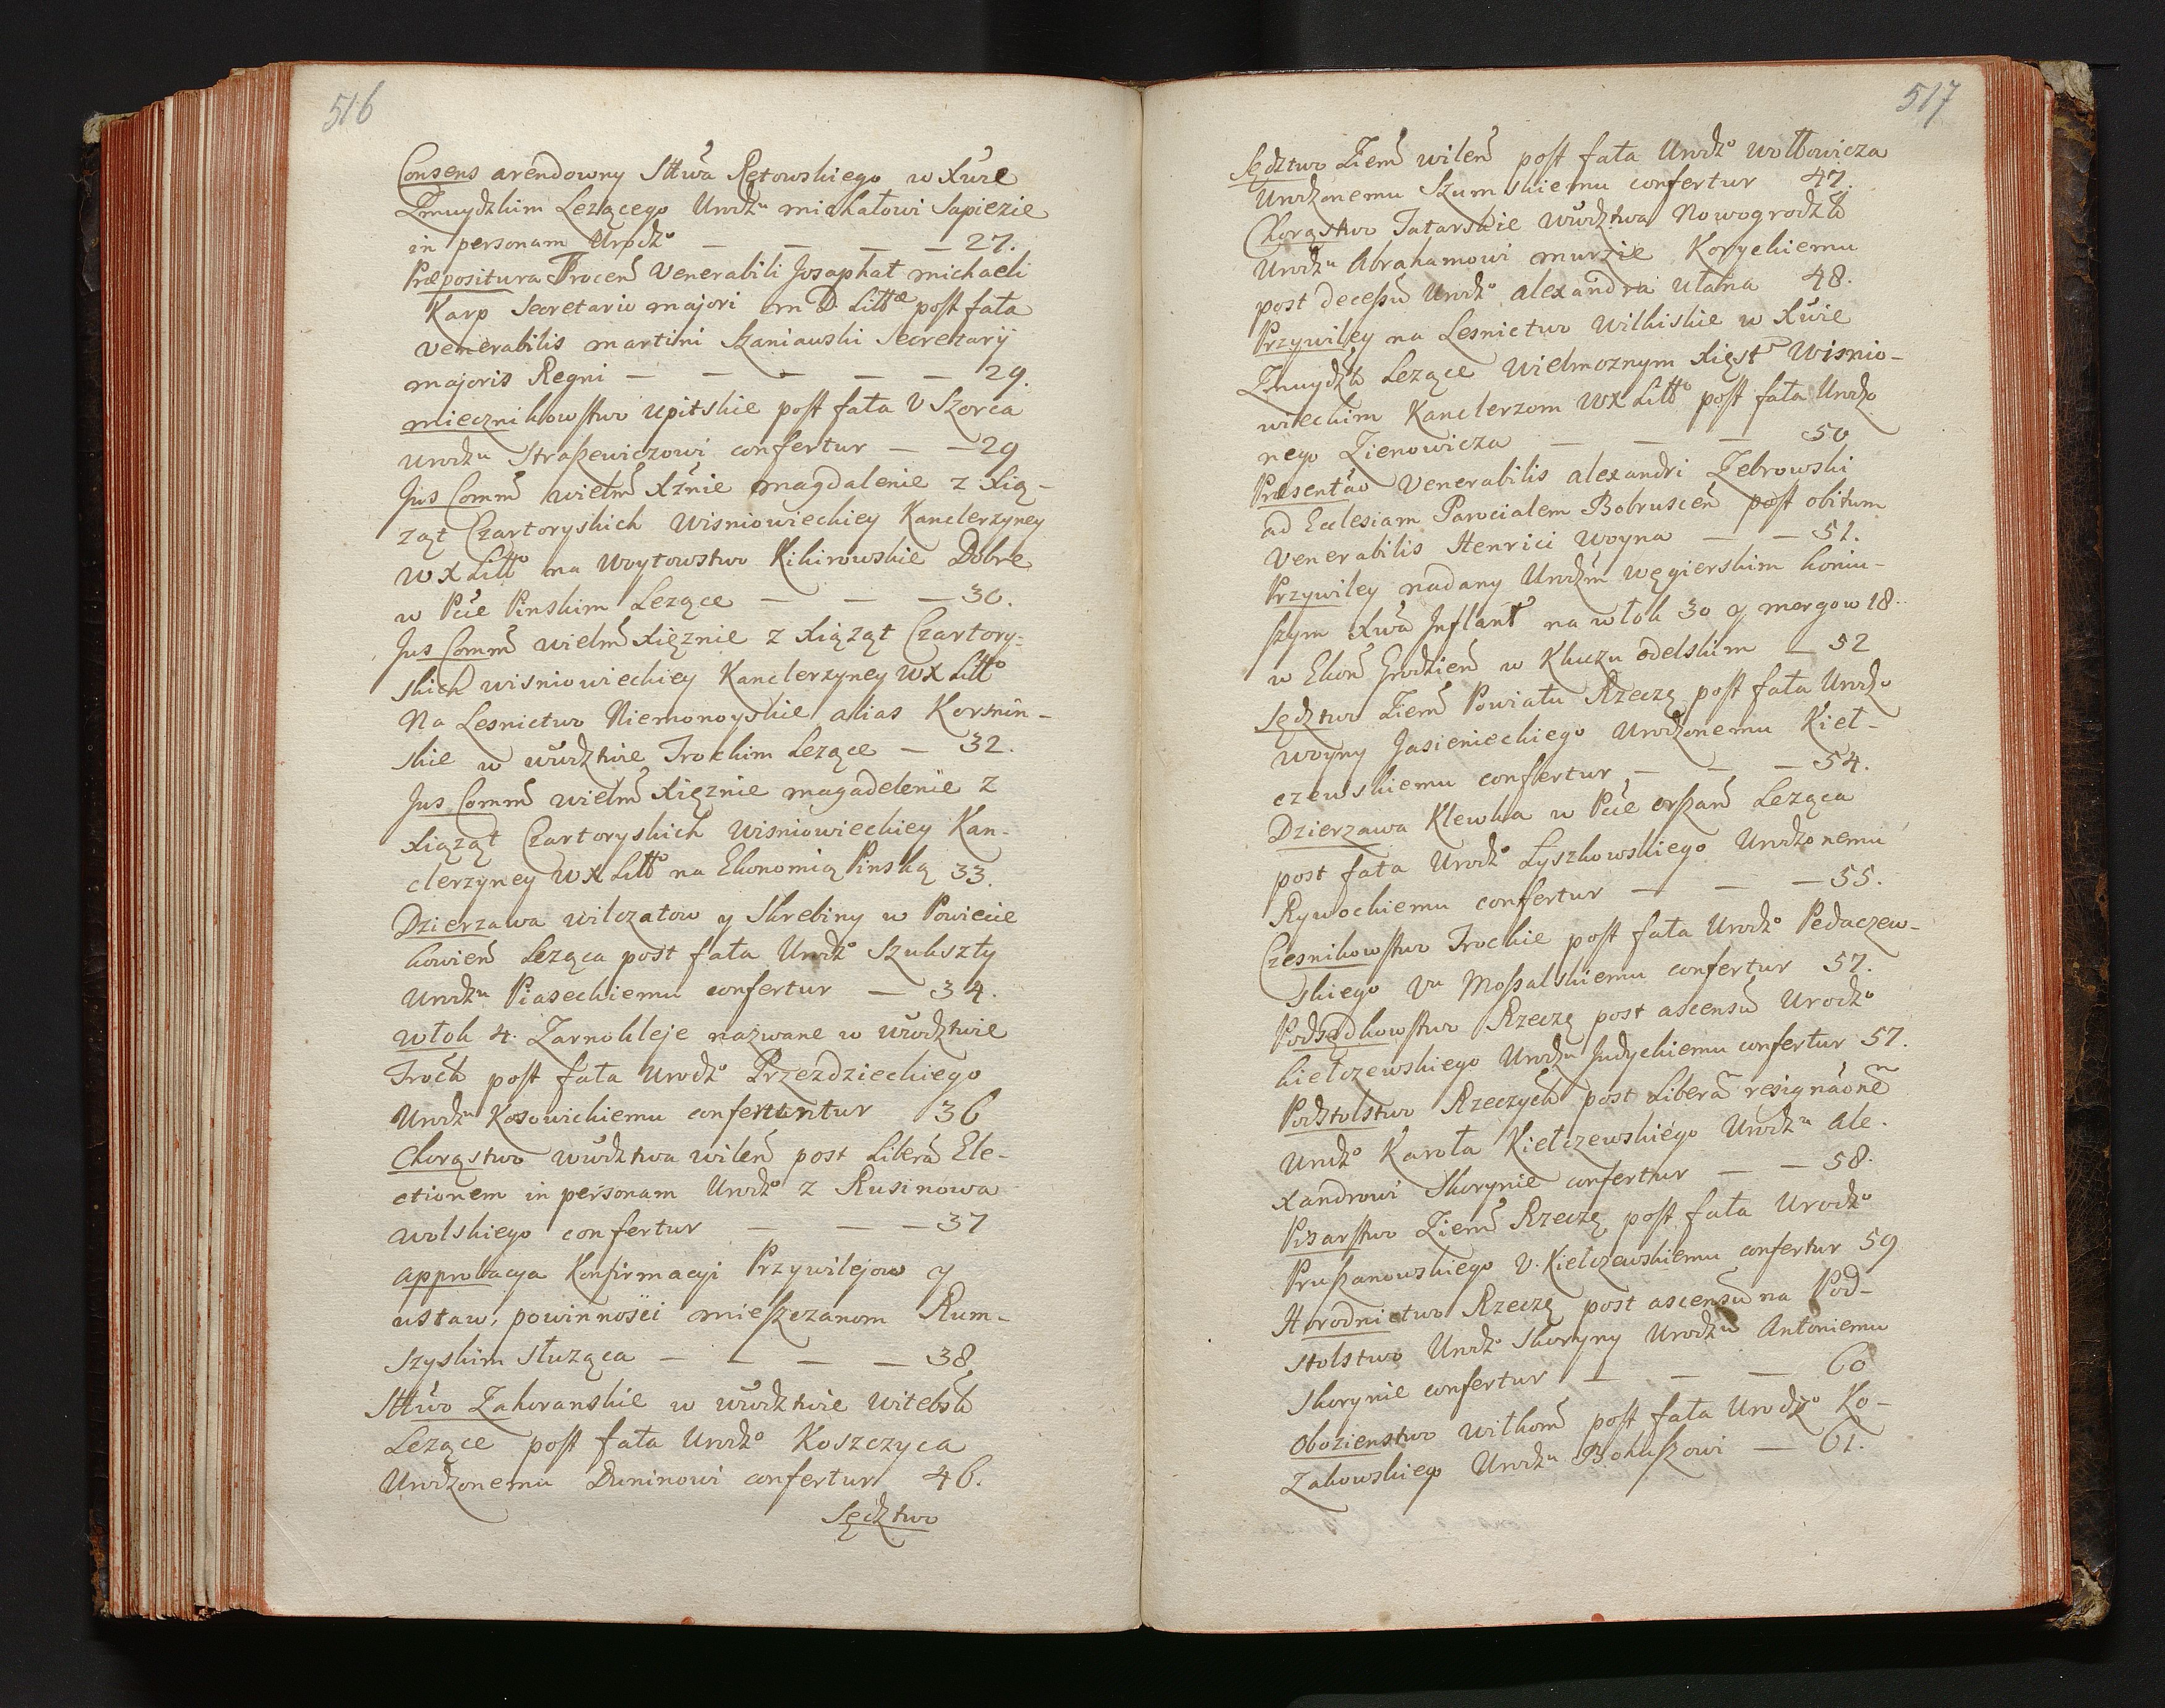 516
Consens arendowny Sttwa Retowskiego w Xwie
Zmuydzkim Lezącego Urodzu michałowi Sapiezie
in personam Urodzo — — — — 27.
Præpositura Trocen Venerabili Josaphat michaeli
Karp Secretario majori m D Littæ post fata
venerabilis martini Szaniawski Secretarij
majoris Regni — — — — — 29.
miecznikowstwo upitskie post fata V Szorca
urodzu Straszewiczowi confertur — — 29
Jus Comm wielm Xżnie magdalenie z Xią-
ząt Czartoryskich Wisniowieckiey Kanclerzyney
W X Litto na Woytowstwo Kikirowskie Dobre
w Pcie Pinskim Lezące — — — 30.
Jus Comm wielm Xięznie z Xiąząt Czartory-
skich wisniowieckiey Kanclerzyney W X Litto
Na Lesnictwo Niemonoyskie alias Kormin-
skie w wwdztwie Trockim Lezące — 32.
Jus Comm wielm Xięznie magadelenie z
Xiąząt Czartoryskich Wisniowieckiey Kan-
clerzyney W X Litto na Ekonomią Pinską 33.
Dzierzawa wilczatow y Skrebiny w Powiecie
kowien Leząca post fata Urodzo Szukszty
Urodzu Piaseckiemu confertur — 34.
włok 4. Zarnokleje nazwane w wwodztwie
Trock post fata urodzo Przezdzieckiego
Urodzu Kosowickiemu conferuntur 36
Chorąstwo wwdztwa wilen post Liberã Ele-
ctionem in personam Urodzo z Rusinowa
wolskiego confertur — — — 37
Approbacya Konfirmacyi Przywilejow y
ustaw, powinnosci mieszczanom Rum-
szyskim słuząca — — — — 38
Sttwo Zahoranskie w wwodztwie witebsk
Lezące post fata Urodzo Koszczyca
Urodzonemu Duninowi confertur 46.
Sędztwo
517
Sędztwo Ziem wilen post fata Urodzo wołłowicza
Urodzonemu Szumskiemu confertur 47.
Chorąstwo Tatarskie wwodztwa Nowogrodzk
Urodzu Abrahamowi murzie Koryckiemu
post decessu Urodzo alexandra ułana 48.
Przywiley na Lesnictwo Wilkiskie w Xwie
Zmuydzk Lezące Wielmoznym Xięstm Wisnio-
wieckim Kanclerzom W X Litto post fata Urodzo
nego Zienowicza — — — 50
Præsentao Venerabilis alexandri Zebrowski
ad Ecclesiam Parocialem Bobruscen post obitum
Venerabilis Henrici woyna — — 51.
Przywiley nadany Urodzm węgierskim koniu-
szym Xwa Inflant na włok 30 y mergow 18.
w Ekon Grodzien w Kluczu odelskim — 52
Sędztwo Ziem Powiatu Rzeczę post fata Urodzo
woyny Jasienieckiego Urodzonemu Kieł-
czewskiemu confertur — — — 54.
Dzierzawa Klewka w Pcie orszan Leząca
post fata Urodzo Łyszkowskiego Urodzonemu
Rywockiemu confertur — — — 55.
Czesnikowstwo Trockie post fata Urodzo Pedaczew-
skiego Vu Mossalskiemu confertur 57.
Podsędkowstwo Rzeczę post ascensu Urodzo
kiełczewskiego Urodzu Judyckiemu confertur 57.
Podstolstwo Rzeczyck post Liberã resignaonẽ
Urodzo Karola Kiełczewskiego Urodzu ale-
xandrowi Skorynie confertur — — 58.
Pisarstwo Ziem Rzeczę post fata Urodzo
Pruszanowskiego V. Kiełczewskiemu confertur 59
Horodnictwo Rzeczę post ascensu na Pod-
stolstwo Urodzo Skoryny Urodzu Antoniemu
Skorynie confertur — — — 60
Obozienstwo wilkom post fata Urodzo Ko-
zakowskiego Urodzu Bohuszowi — 61.